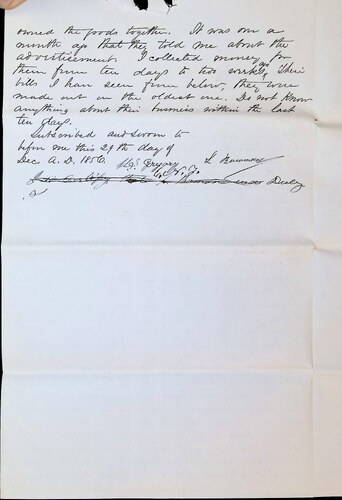 owned the goods together. It was over a
month ago that they told me about the
advertisement. I collected money for
them from ten days to two weeks ago. Their
bills I have seen from below, they were
made out in the oldest one. Do not know
anything about their business within the last
ten days.
Subscribed and sworn to
before me this 29th day of
Dec A.D. 1856.
Gregory
I do certify